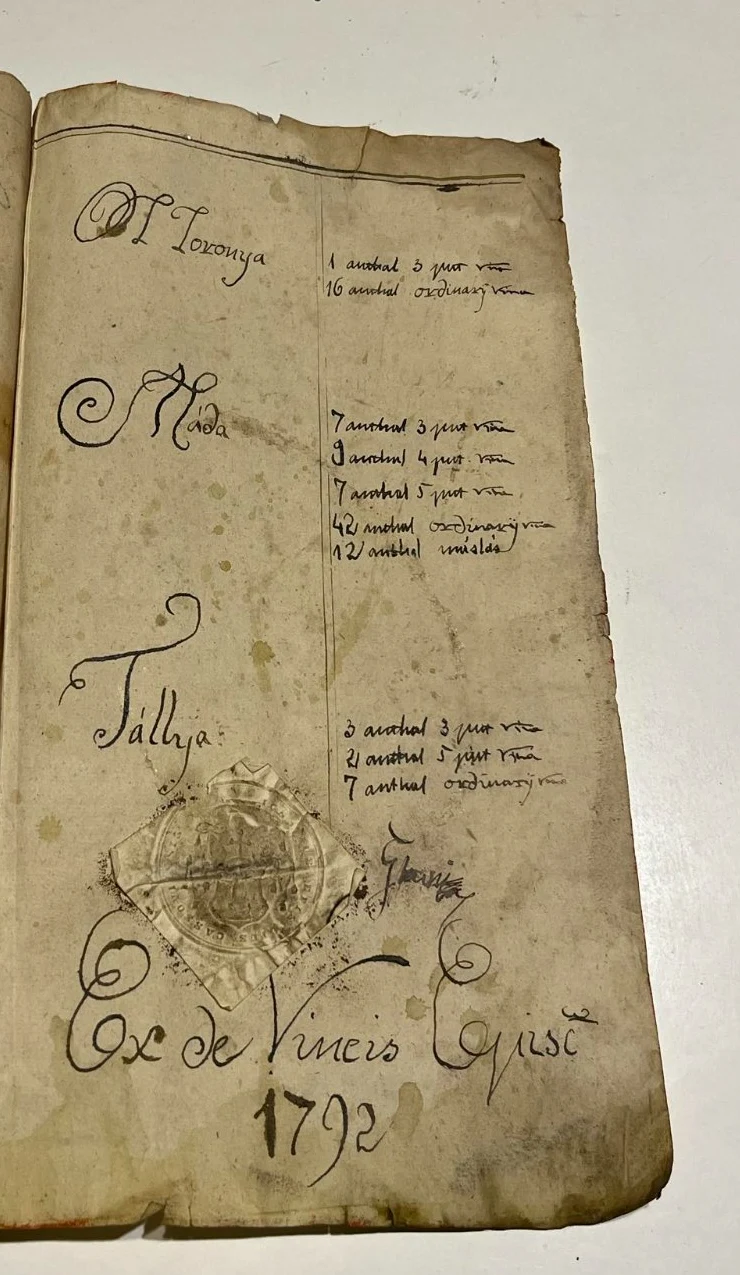 Ol Toronya
1 anthal 3 putt vina
16 anthal ordinarÿ vina
Máda
7 anthal 3 putt vina
9 anthal 4 putt vina
7 anthal 5 putt vina
42 anthal ordinarÿ vina
12 anthal máslás
Tállya
3 anthal 3 putt vina
2 anthal 5 putt vina
7 anthal ordinarÿ vina
Ex de Vineis Episc
1792